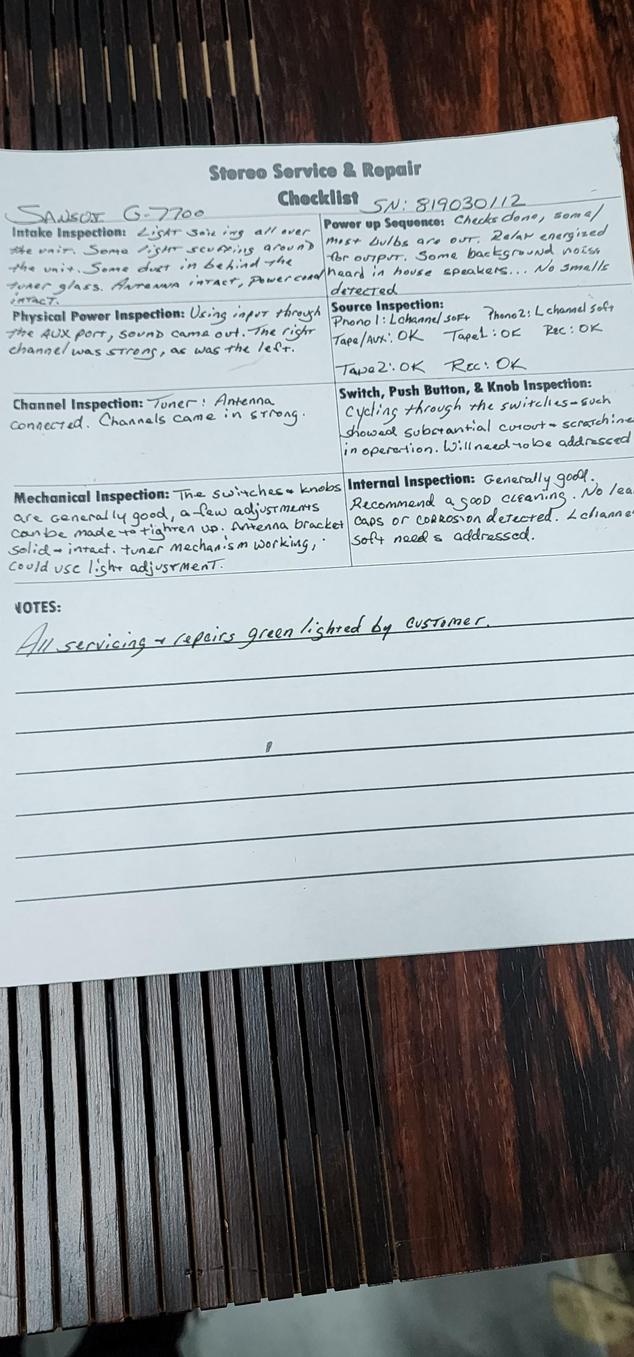 Stereo Service & Repair
Checklist
SANSUI G-7700
SN: 819030112
Intake Inspection: Light soiling all over
the unit. Some light scuffing around
the unit. Some dust in behind the
tuner glass. Antenna intact, Power cord
intact.
Power up Sequence: Checks done, some/
most bulbs are out. Relay energized
for output. Some background noise
heard in house speakers... No smells
detected
Physical Power Inspection: Using input through
the AUX port, sound came out. The right
channel was strong, as was the left.
Source Inspection:
Phono 1: L channel soft Phono2: L channel soft
Tape/Aux: OK Tape1: OK Rec: OK
Tape2: OK Rec: OK
Channel Inspection: Tuner: Antenna
connected. Channels came in strong.
Switch, Push Button, & Knob Inspection:
Cycling through the switches - such
showed substantial cutout + scratchine
in operation. Will need to be addressed
Mechanical Inspection: The switches + knobs
are generally good, a few adjustments
can be made to tighten up. Antenna bracket
solid + intact. tuner mechanism working,
could use light adjustment.
Internal Inspection: Generally good.
Recommend a good cleaning. No lea
caps or corrosion detected. L channe
soft needs addressed.
NOTES:
All servicing + repairs green lighted by customer.